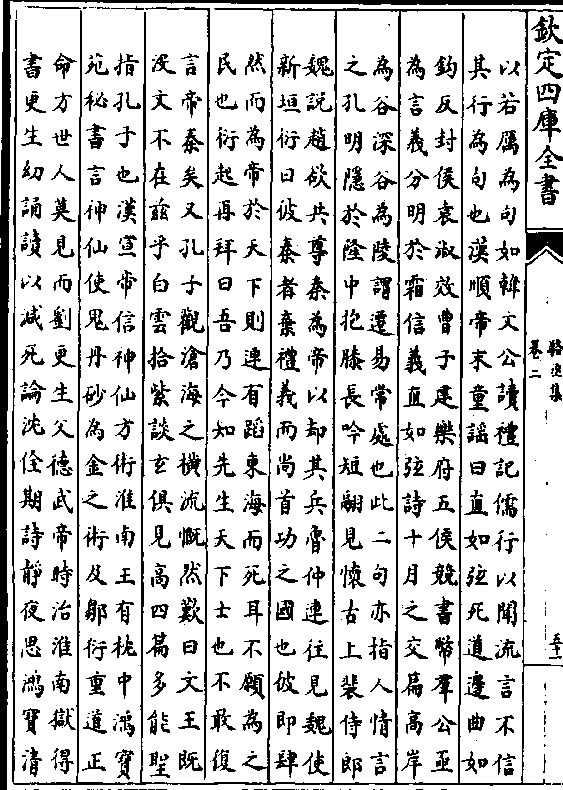 欽定四庫全書
駱丞集
卷二
五十一
以若厲為句如韓文公讀禮記儒行以聞流言不信
其行為句也漢順帝末童謡曰直如弦死道邊曲如
鈎反封侯袁淑效曹子建樂府五侯競書幣羣公亟
為言義分明於霜信義直如弦詩十月之交篇高岸
為谷深谷為陵謂遷易常處也此二句亦指人情言
之孔明隱於隆中抱膝長吟短翮見懷古上裴侍郎
魏說趙欲共尊秦為帝以却其兵魯仲連往見魏使
新垣衍曰彼秦者棄禮義而尚首功之國也彼即肆
然而為帝於天下則連有蹈東海而死耳不願為之
民也衍起再拜曰吾乃今知先生天下士也不敢復
言帝秦矣又孔子觀滄海之橫流慨然歎曰文王既
沒文不在兹乎白雲拾紫談玄俱見高四篇多能聖
指孔子也漢宣帝信神仙方術淮南王有枕中鴻寶
苑秘書言神仙使鬼丹砂為金之術及鄒衍重道正
命方世人莫見而劉更生父德武帝時治淮南獄得
書更生幼誦讀以減死論沈佺期詩靜夜思鴻寶清